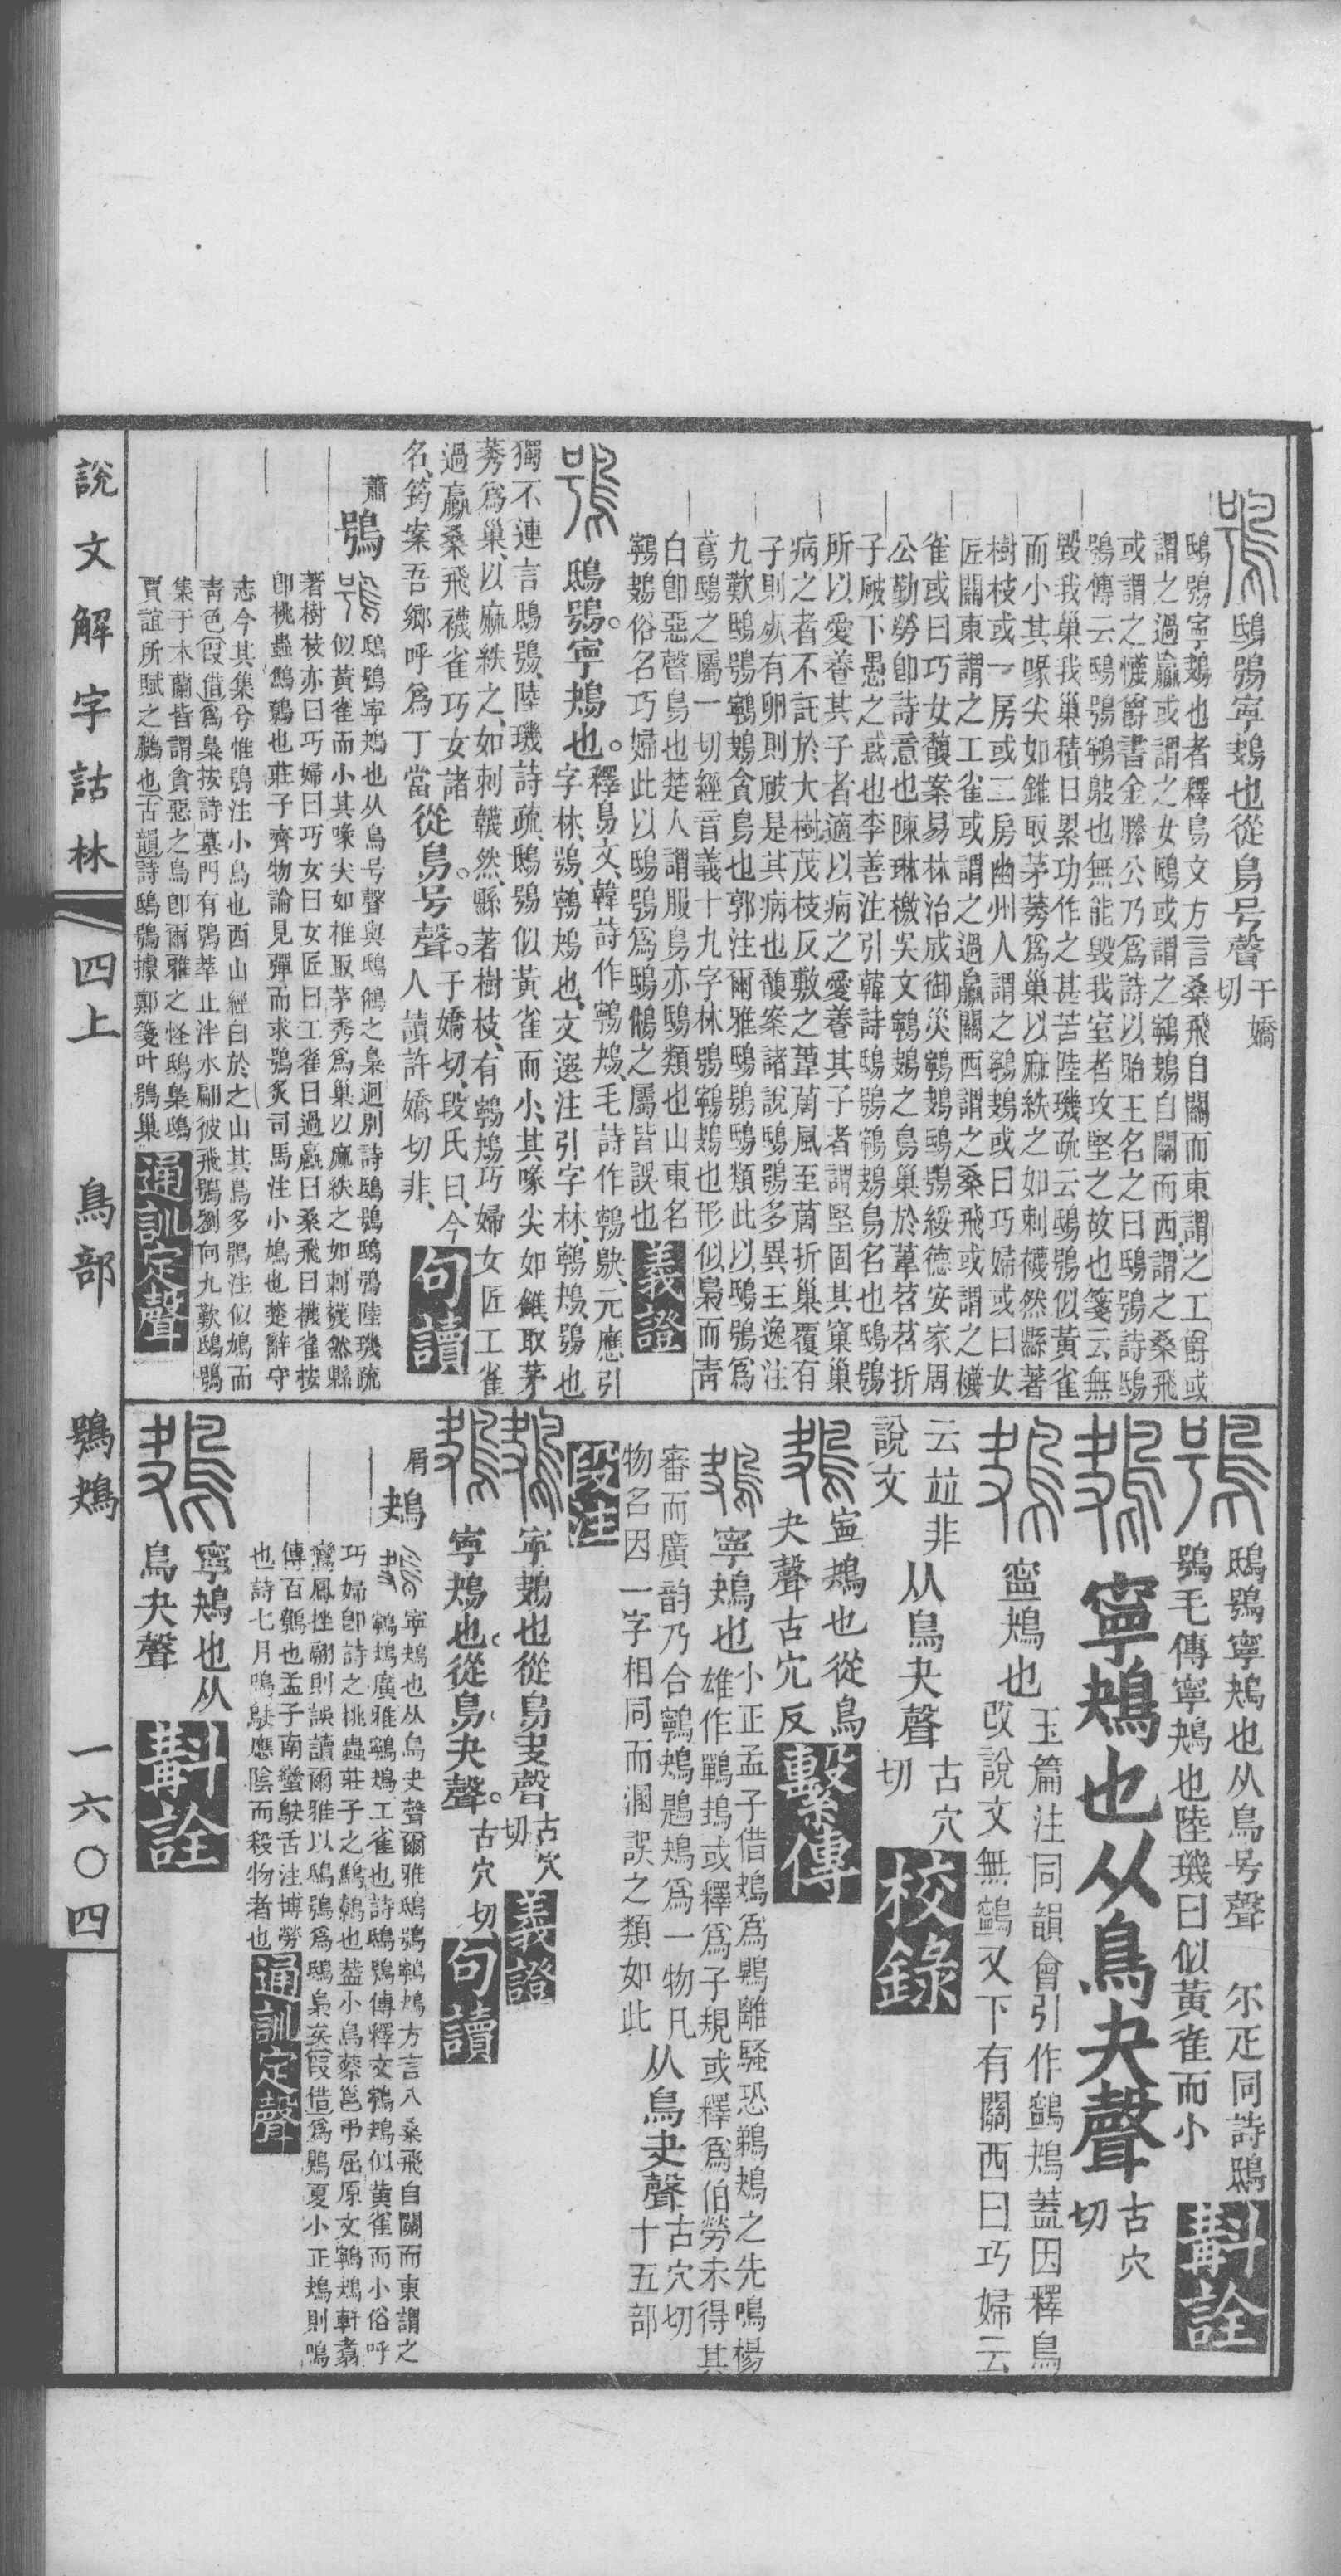 鴞 鴟鴞寧鴂也從鳥号聲 于嬌切
鴟鴞寧鴂也者釋鳥文方言桑飛自關而東謂之工爵或
謂之過鸁或謂之女鴎或謂之鸋鴂自關而西謂之桑飛
或謂之懱爵書金縢公乃爲詩以貽王名之曰鴟鴞詩鴟
鴞傳云鴟鴞鸋鴂也無能毀我室者攻堅之故也箋云無
毀我巢我巢積日累功作之甚苦陸璣疏云鴟鴞似黃雀
而小其喙尖如錐取茅莠爲巢以麻紩之如刺襪然縣著
樹枝或一房或二房幽州人謂之鸋鴂或曰巧婦或曰女
匠關東謂之工雀或謂之過鸁關西謂之桑飛或謂之襪
雀或曰巧女馥案易林治成御災鸋鴂鴟鴞綏德安家周
公勤勞卽詩意也陳琳檄吳文鸋鴂之鳥巢於葦苕苕折
子破下愚之惑也李善注引韓詩鴟鴞鸋鴂鳥名也鴟鴞
所以愛養其子者適以病之愛養其子者謂堅固其窠巢
病之者不託於大樹茂枝反敷之葦䓪風至䓪折巢覆有
子則死有卵則破是其病也馥案諸說鴟鴞多異王逸注
九歎鴟鴞鸋鴂貪鳥也郭注爾雅鴟鴞鴟類此以鴟鴞爲
鳶鴟之屬一切經音義十九字林鴞鸋鴂也形似梟而靑
白卽惡聲鳥也楚人謂服鳥亦鴟類也山東名
鸋鴂俗名巧婦此以鴟鴞爲鴟鵂之屬皆誤也 義證
鴞 鴟鴞。寧鴂也。釋鳥文、韓詩作鸋鴂、毛詩作鸋鴃、元應引
字林、鴞、鸋鴂也、文選注引字林、鸋鴂、鴞也
獨不連言鴟鴞、陸璣詩疏、鴟鴞似黃雀而小、其喙尖如錐、取茅
莠爲巢、以麻紩之、如刺韤然、縣著樹枝、有鸋鴂巧婦女匠工雀
過鸁桑飛襪雀巧女諸
名、筠案吾鄉呼爲丁當 從鳥。号聲。子嬌切、段氏曰、今
人讀許嬌切非、 句讀
蕭 鴞 鴟鴞寧鴂也从鳥号聲與鴟鵂之梟迥別詩鴟鴞鴟鴞陸璣疏
似黃雀而小其喙尖如椎取茅秀爲巢以麻紩之如刺襪然縣
著樹枝亦曰巧婦曰巧女曰女匠曰工雀曰過鸁曰桑飛曰襪雀按
卽桃蟲鷦鷯也莊子齊物論見彈而求鴞炙司馬注小鳩也楚辭守
志今其集兮惟鴞注小鳥也西山經白於之山其鳥多鴞注似鳩而
靑色(叚借)爲梟按詩墓門有鴞萃止泮水翩彼飛鴞劉向九歎鴟鴞
集于木蘭皆謂貪惡之鳥卽爾雅之怪鴟梟鴟
賈誼所賦之鵩也(古韻)詩鴟鴞據鄭箋叶鴞巢 通訓定聲
鴞 鴟鴞寧鴂也从鳥号聲 尒疋同詩鴟
鴞毛傳寧鴂也陸璣曰似黃雀而小 斠詮
鴂 寧鴂也从鳥夬聲 古穴切
鴂 寍鴂也 玉篇注同韻會引作鸋鴂蓋因釋鳥
改說文無鸋又下有關西曰巧婦云
云竝非
說文 从鳥夬聲 古穴切 校錄
鴂 寍鴂也從鳥
夬聲古穴反 繫傳
鴂 寧鴂也 小正孟子借鴂爲鶪離騷恐鵜鴂之先鳴楊
雄作鷤䳏或釋爲子規或釋爲伯勞未得其
審而廣韵乃合鸋鴂鶗鴂爲一物凡
物名因一字相同而溷誤之類如此 从鳥夬聲 古穴切
十五部 段注
鴂 寧鴂也從鳥夬聲 古穴切 義證
鴂 寧鴂也。從鳥。夬聲。古穴切 句讀
屑 鴂 寧鴂也从鳥夬聲爾雅鴟鴞鸋鴂方言八桑飛自關而東謂之
鸋鴂廣雅鸋鴂工雀也詩鴟鴞傳釋文鸋鴂似黃雀而小俗呼
巧婦卽詩之桃蟲莊子之鷦鷯也葢小鳥蔡邕弔屈原文鸋鴂軒翥
鸞鳳挫翮則誤讀爾雅以鴟鴞爲鴟梟矣(叚借)爲鶪夏小正鴂則鳴
傳百鷯也孟子南蠻鴃舌注博勞
也詩七月鳴鴃應陰而殺物者也 通訓定聲
鴂 寧鴂也从
鳥夬聲 斠詮
說文解字詁林 四上 鳥部 鴞鴂 一六〇四